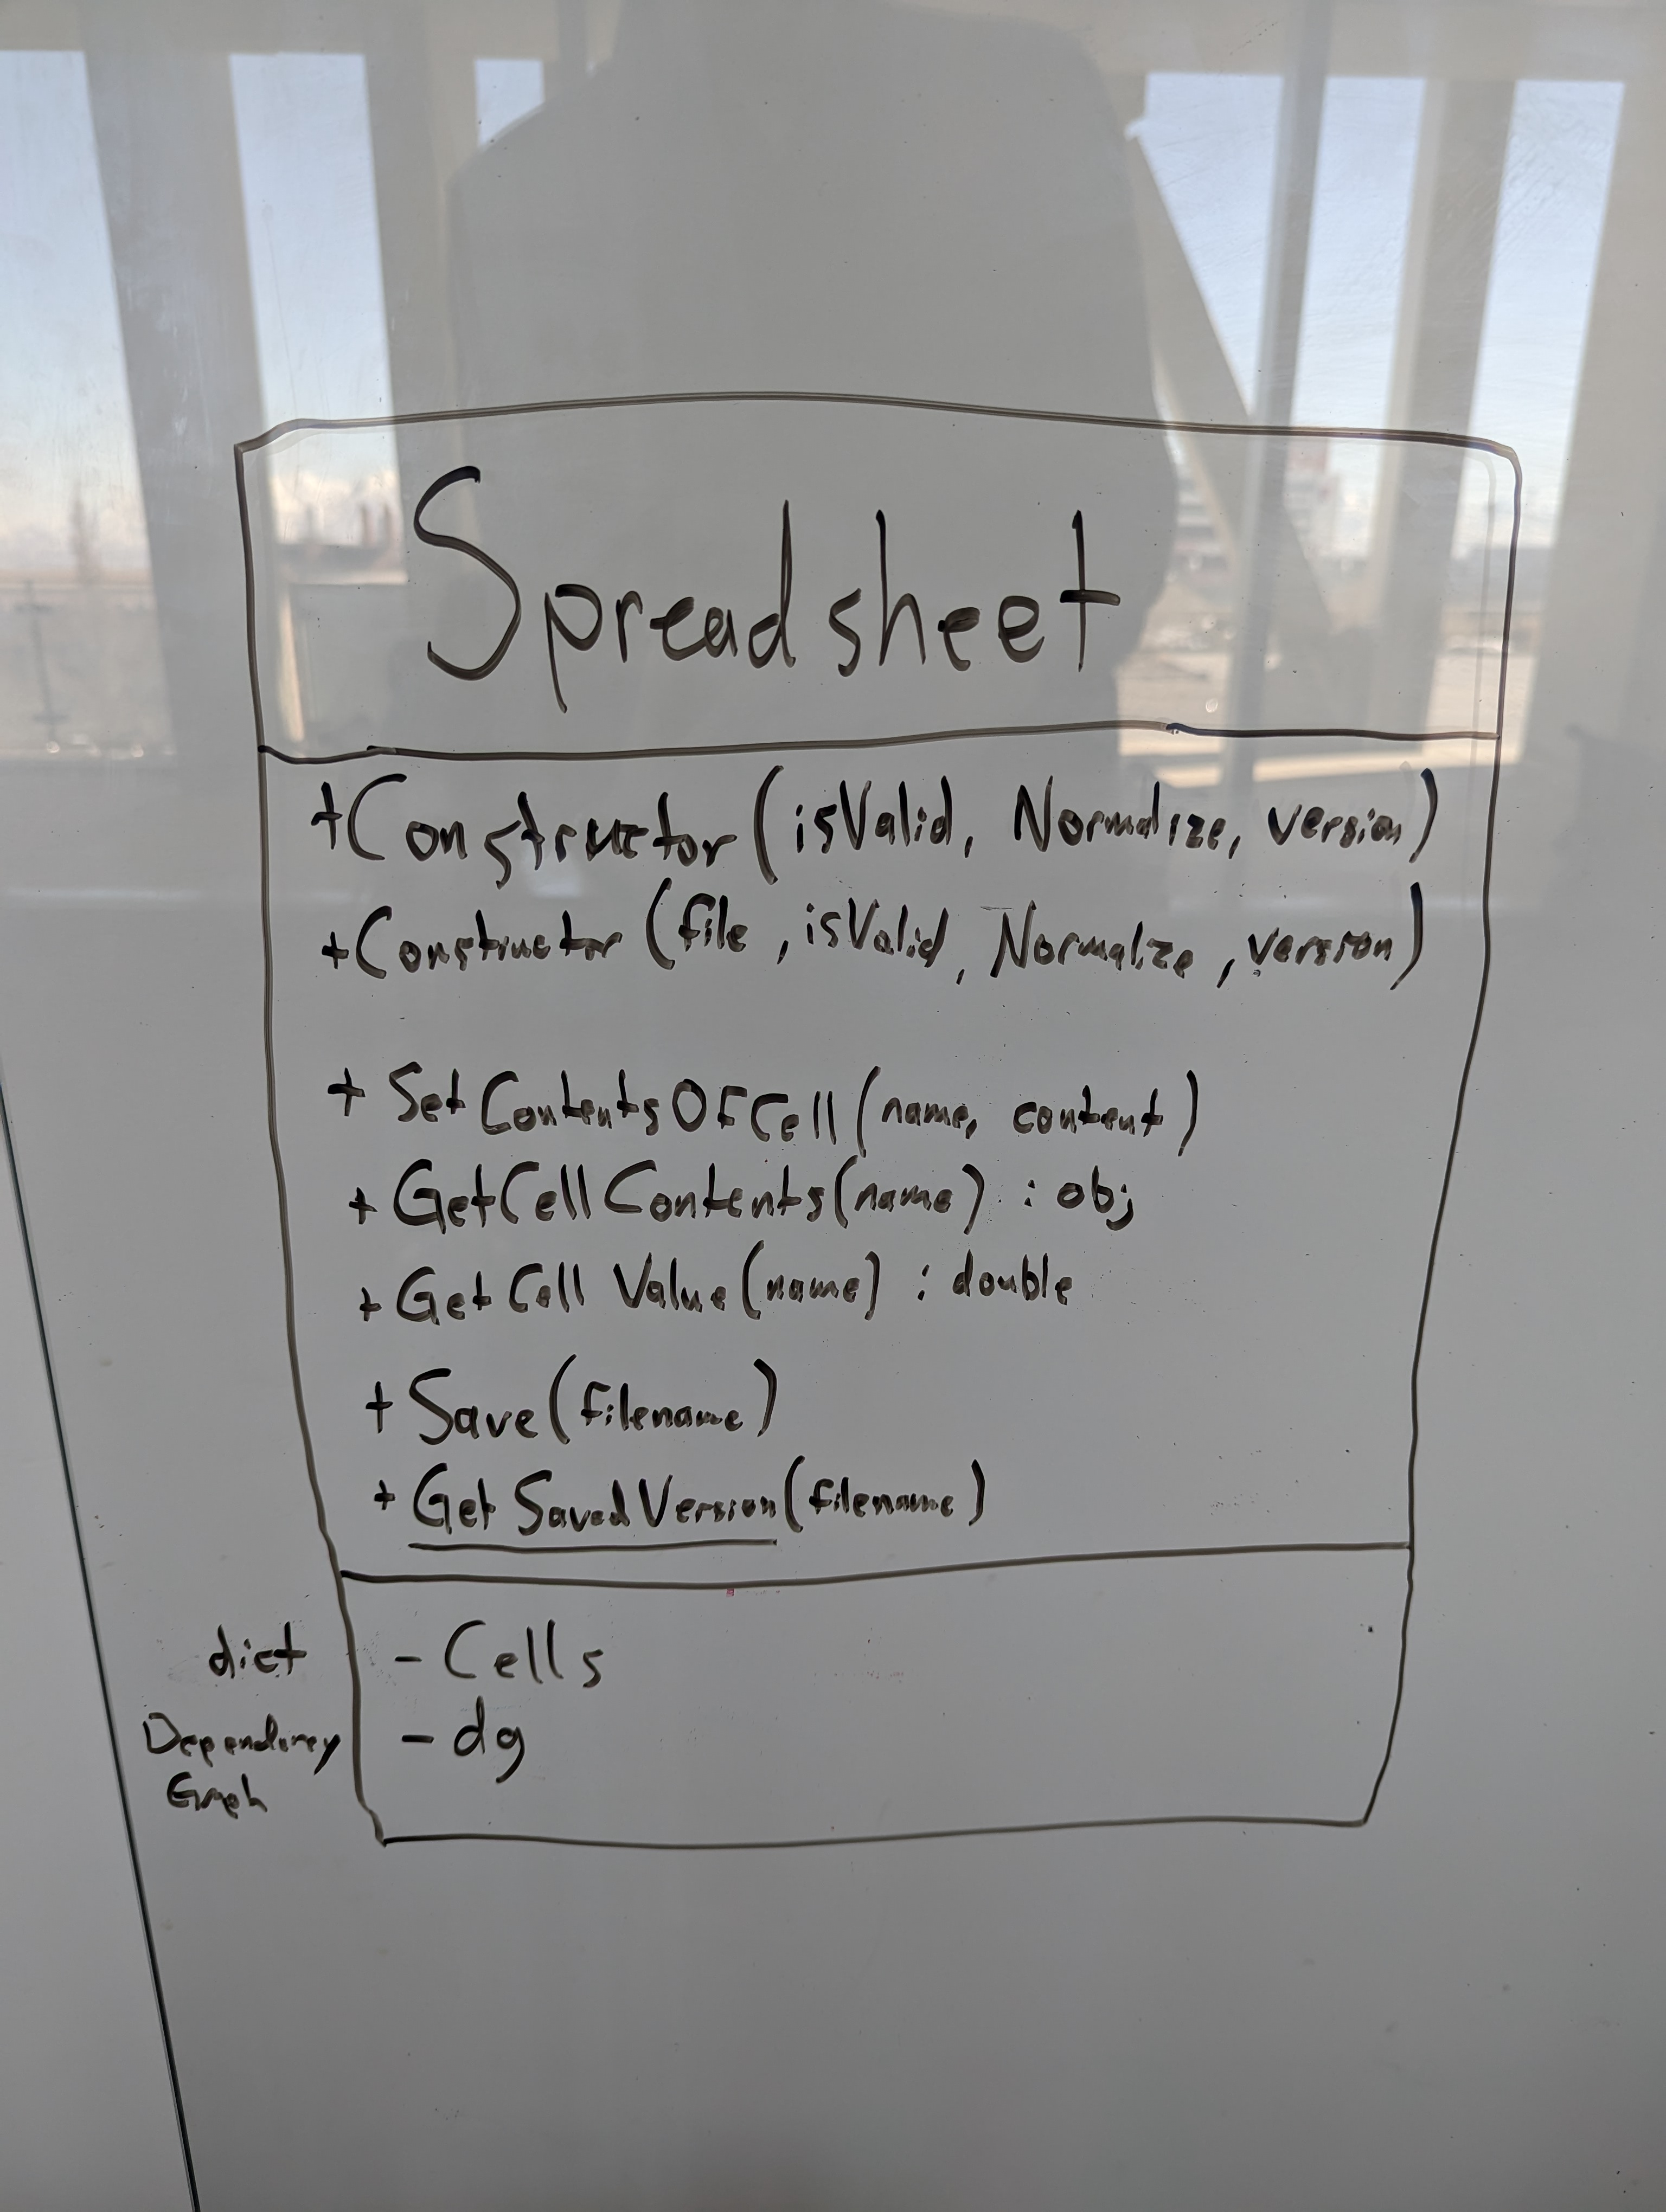 Spreadsheet
+Constructor(isValid, Normalize, version)
+Constructor(file, isValid, Normalize, version)
+ SetContentsOfCell(name, content)
+ GetCellContents(name) : obj
+ GetCellValue(name) : double
+ Save(filename)
+ GetSavedVersion(filename)
dict - Cells
Dependency - dg
Graph